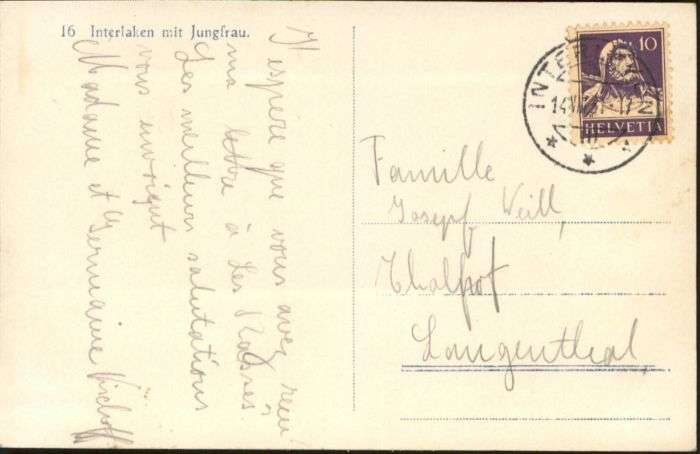 16 Interlaken mit Jungfrau.
J'espere que vous avez reçu
ma lettre à Les Rasses
Les meilleurs salutations
vous envoient
Madame et Germaine
10
HELVETIA
INTER
Famille
Josepf Weill,
Thalhof
Langenthal,